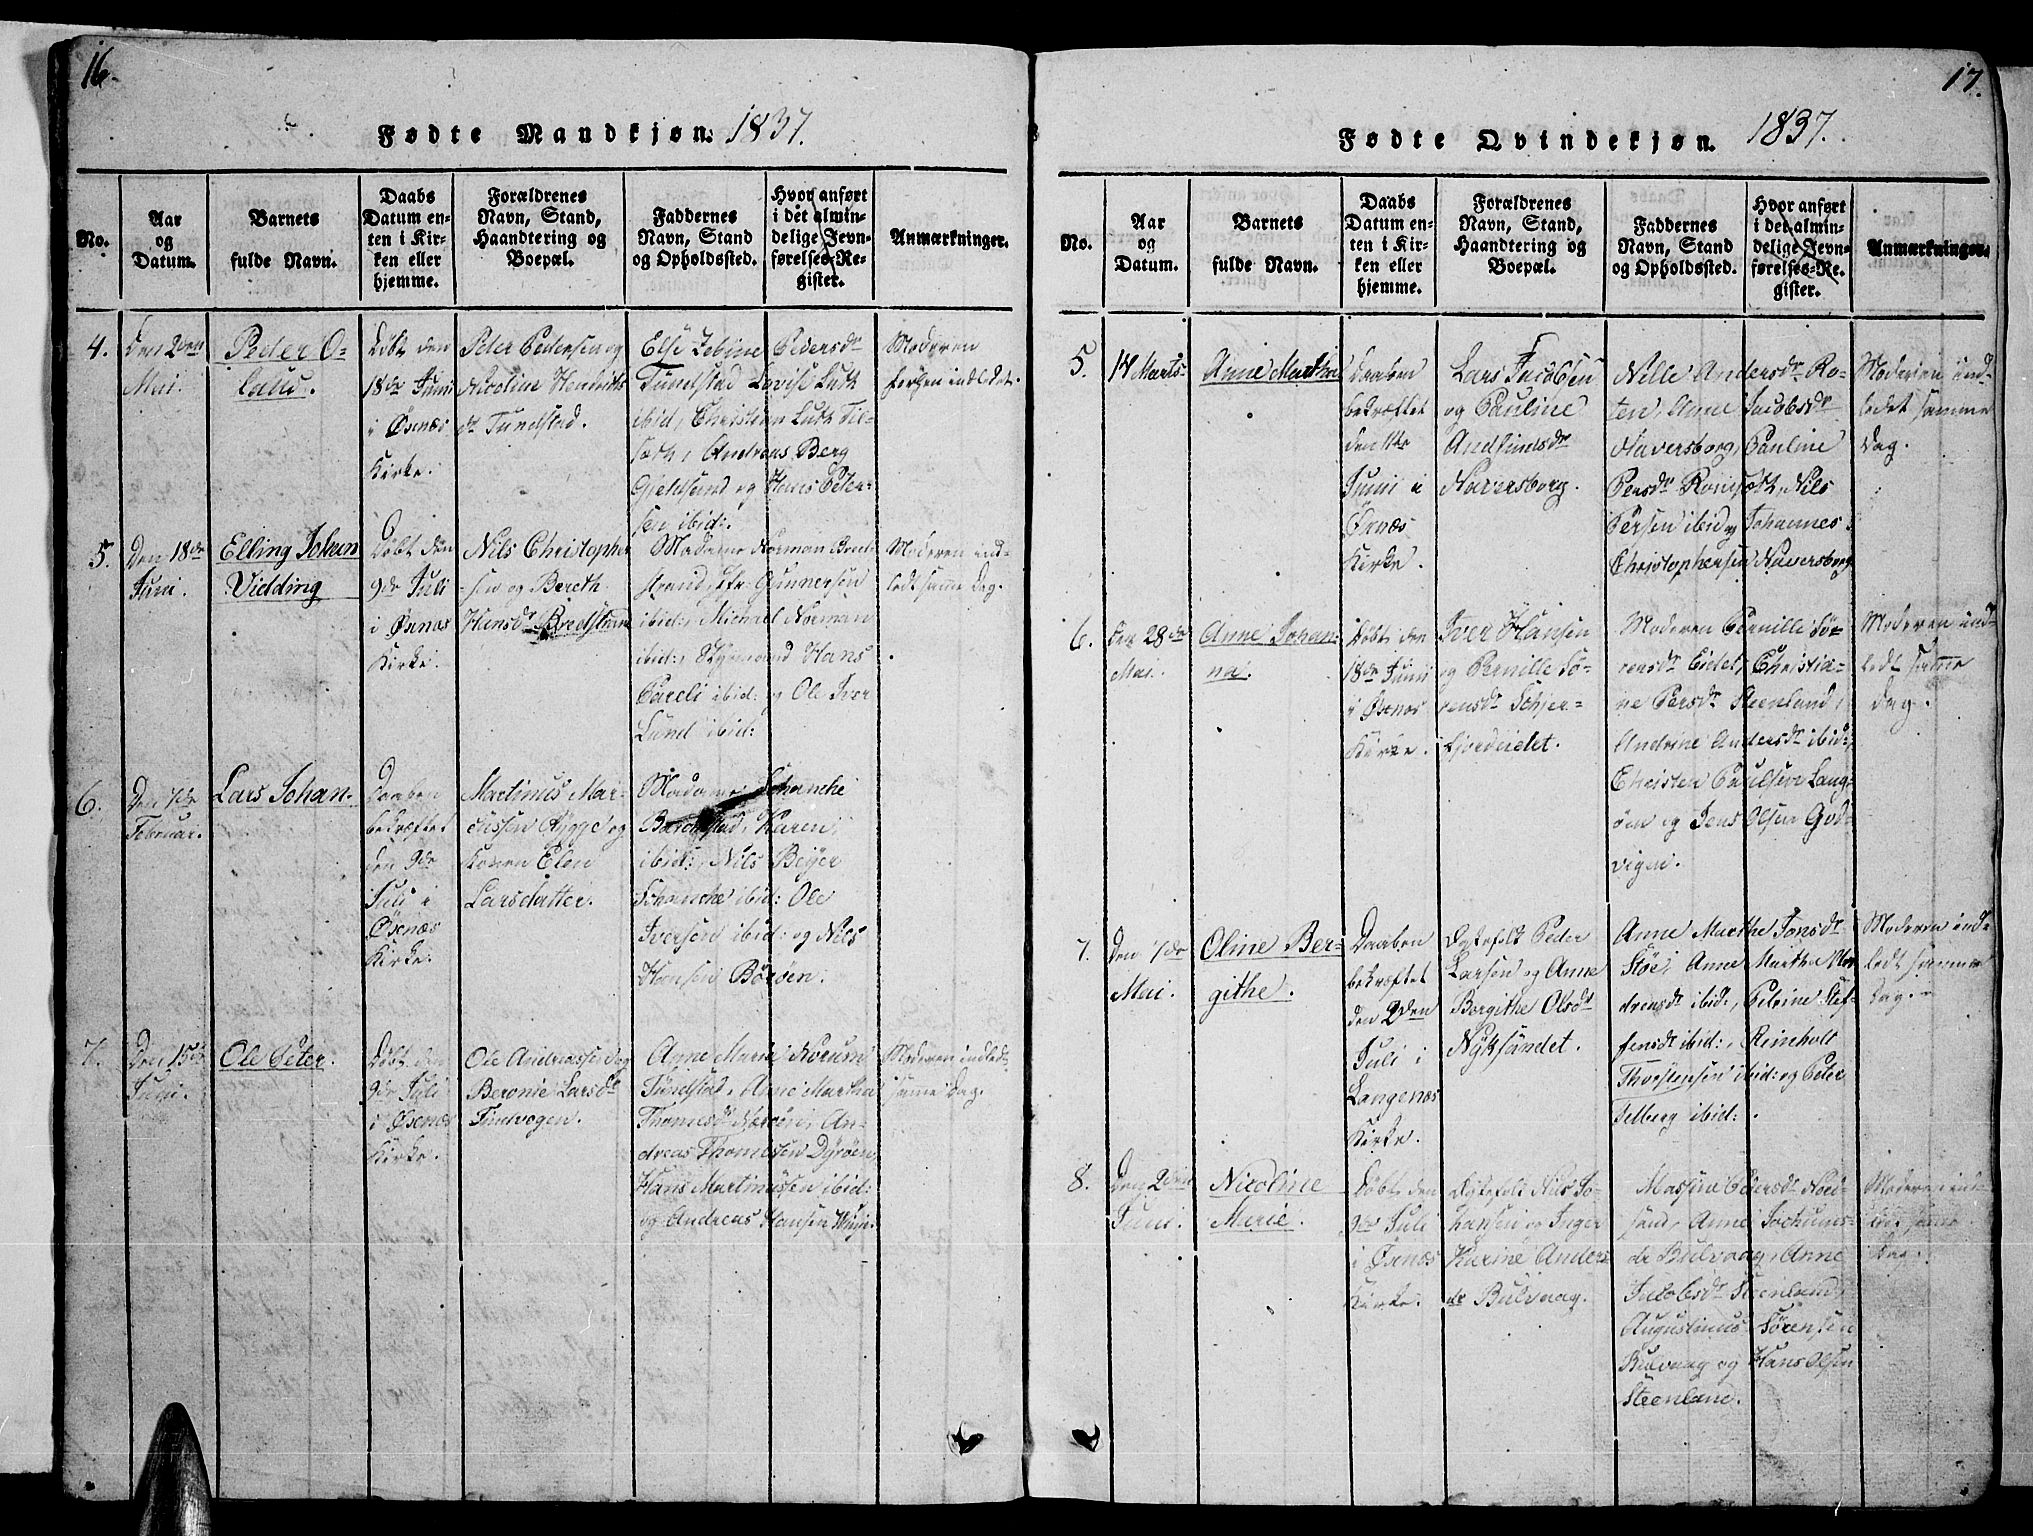 16.
Fødte Mandkjøn. 1837.
No.
Aar
og
Datum.
Barnets
fulde Navn.
Daabs
Datum en-
ten i Kir-
ken eller
hjemme.
Forældrenes
Navn, Stand,
Haandtering og
Boepæl.
Faddernes
Navn, Stand
og Opholdssted.
Hvor anført
i det almin-
delige Jevn-
førelses-Re-
gister.
Anmærkninger.
4.
Den 2den
Mai.
Peder O-
laus.
Døbt den
18de Juni
i Øsnæs
Kirke.
Peter Pedersen og
Nicoline Hendriks
dr Tundstad.
Else Pedersdr
Tundstad Lovise Lutk
ibid, Christian Lutk
Andreas Berg
og Hans Peter-
sen ibid:.
Moderen
5.
Den 18de
Juni.
Elling Johan
Vidding
Døbt den
9de Juli
i Øsnæs
Kirke.
Nils Christopher
sen og Bereth
Hansdr Bredstrand
Madame Norman Bred-
strand, Gunnersen
ibid:, Michael Norman
ibid:, Hans
ibid: og Ole Iver
Lund ibid:
Moderen ind-
ledt samme Dag.
6.
Den 7de
Februar.
Lars Johan.
Daaben
bekræftet
den 9de
Juli i
Øsnæs
Kirke.
Martinus Mar-
og
Konen Elen
Larsdatter.
Madame Schanche
Karen
ibid:, Nils Beyer
Schanche ibid: Ole
Iversen ibid: og Nils
Hansen Børøen.
7.
Den 15de
Juni.
Ole Peter.
Døbt den
9de Juli
i Øsnæs
Kirke.
Ole Andreassen og
Beronie Larsdr
Tinvogen.
Anne Marie Norum
Tundstad, Anne Martha
Thomesdr An-
dreas Thomesen Dyrøen
Hans Martinussen ibid:
og Andreas Hansen
Moderen indledt
samme Dag.
17.
Fødte Qvindekjøn. 1837.
No.
Aar
og
Datum.
Barnets
fulde Navn.
Daabs
Datum en-
ten i Kir-
ken eller
hjemme.
Forældrenes
Navn, Stand,
Haandtering og
Boepæl.
Faddernes
Navn, Stand
og Opholdssted.
Hvor anført
i det almin-
delige Jevn-
førelses-Re-
gister.
Anmærkninger.
5.
14 Marts
Anne Martha
Daaben
bekræftet
den 11te
Juni i
Øsnæs
Kirke.
Lars Jacobsen
og Pauline
Haversborg.
Nille Andersdr Ro-
ten, Anne Jacobsdr
Haversborg, Pauline
Persdr Nils
Persen ibid og Johannes
Christophersen Haversborg
Moderen ind-
ledet samme
Dag.
6.
Den 28de
Mai.
Anne Johan-
na.
Døbt den
18de Juni
i Øsnæs
Kirke.
Iver Hansen
og Pernille Sø-
rensdr Schjer-
fjordeidet.
Moderen Pernille Sø-
rensdr Eidet, Christia-
ne Persdr Steenland,
Andrine Andersdr ibid:,
Christen Paulsen Lang-
øen og Jens Olsen God-
vigen.
Moderen ind-
ledt samme
Dag.
7.
Den 7de
Mai.
Oline Ber-
githe.
Daaben
bekræftet
den 2den
Juli i
Langenæs
Kirke.
Egtefolk Peder
Larsen og Anne
Bergithe Olsdr
Nyksundet.
Anne Marthe Jonsdr
Støe, Anne Martha
ibid:, Petrine Stef-
fensdr ibid:, Reinholt
Thorstensen ibid: og Peter
Felberg ibid:.
Moderen ind-
ledt samme
Dag.
8.
Den 2den
Juni.
Nicoline
Marie.
Døbt den
9de Juli
i Øsnæs
Kirke.
Egtefolk Nils Jo-
hansen og Inger
Karine Anders
dr Bulvaag.
Massine Pedersdr Nord-
sand, Anne Jochums-
dr Bulvaag, Anne
Jacobsdr Steenland,
Augustinus Sørensen
Bulvaag og Hans Olsen
Steenland.
Moderen ind-
ledt samme
Dag.